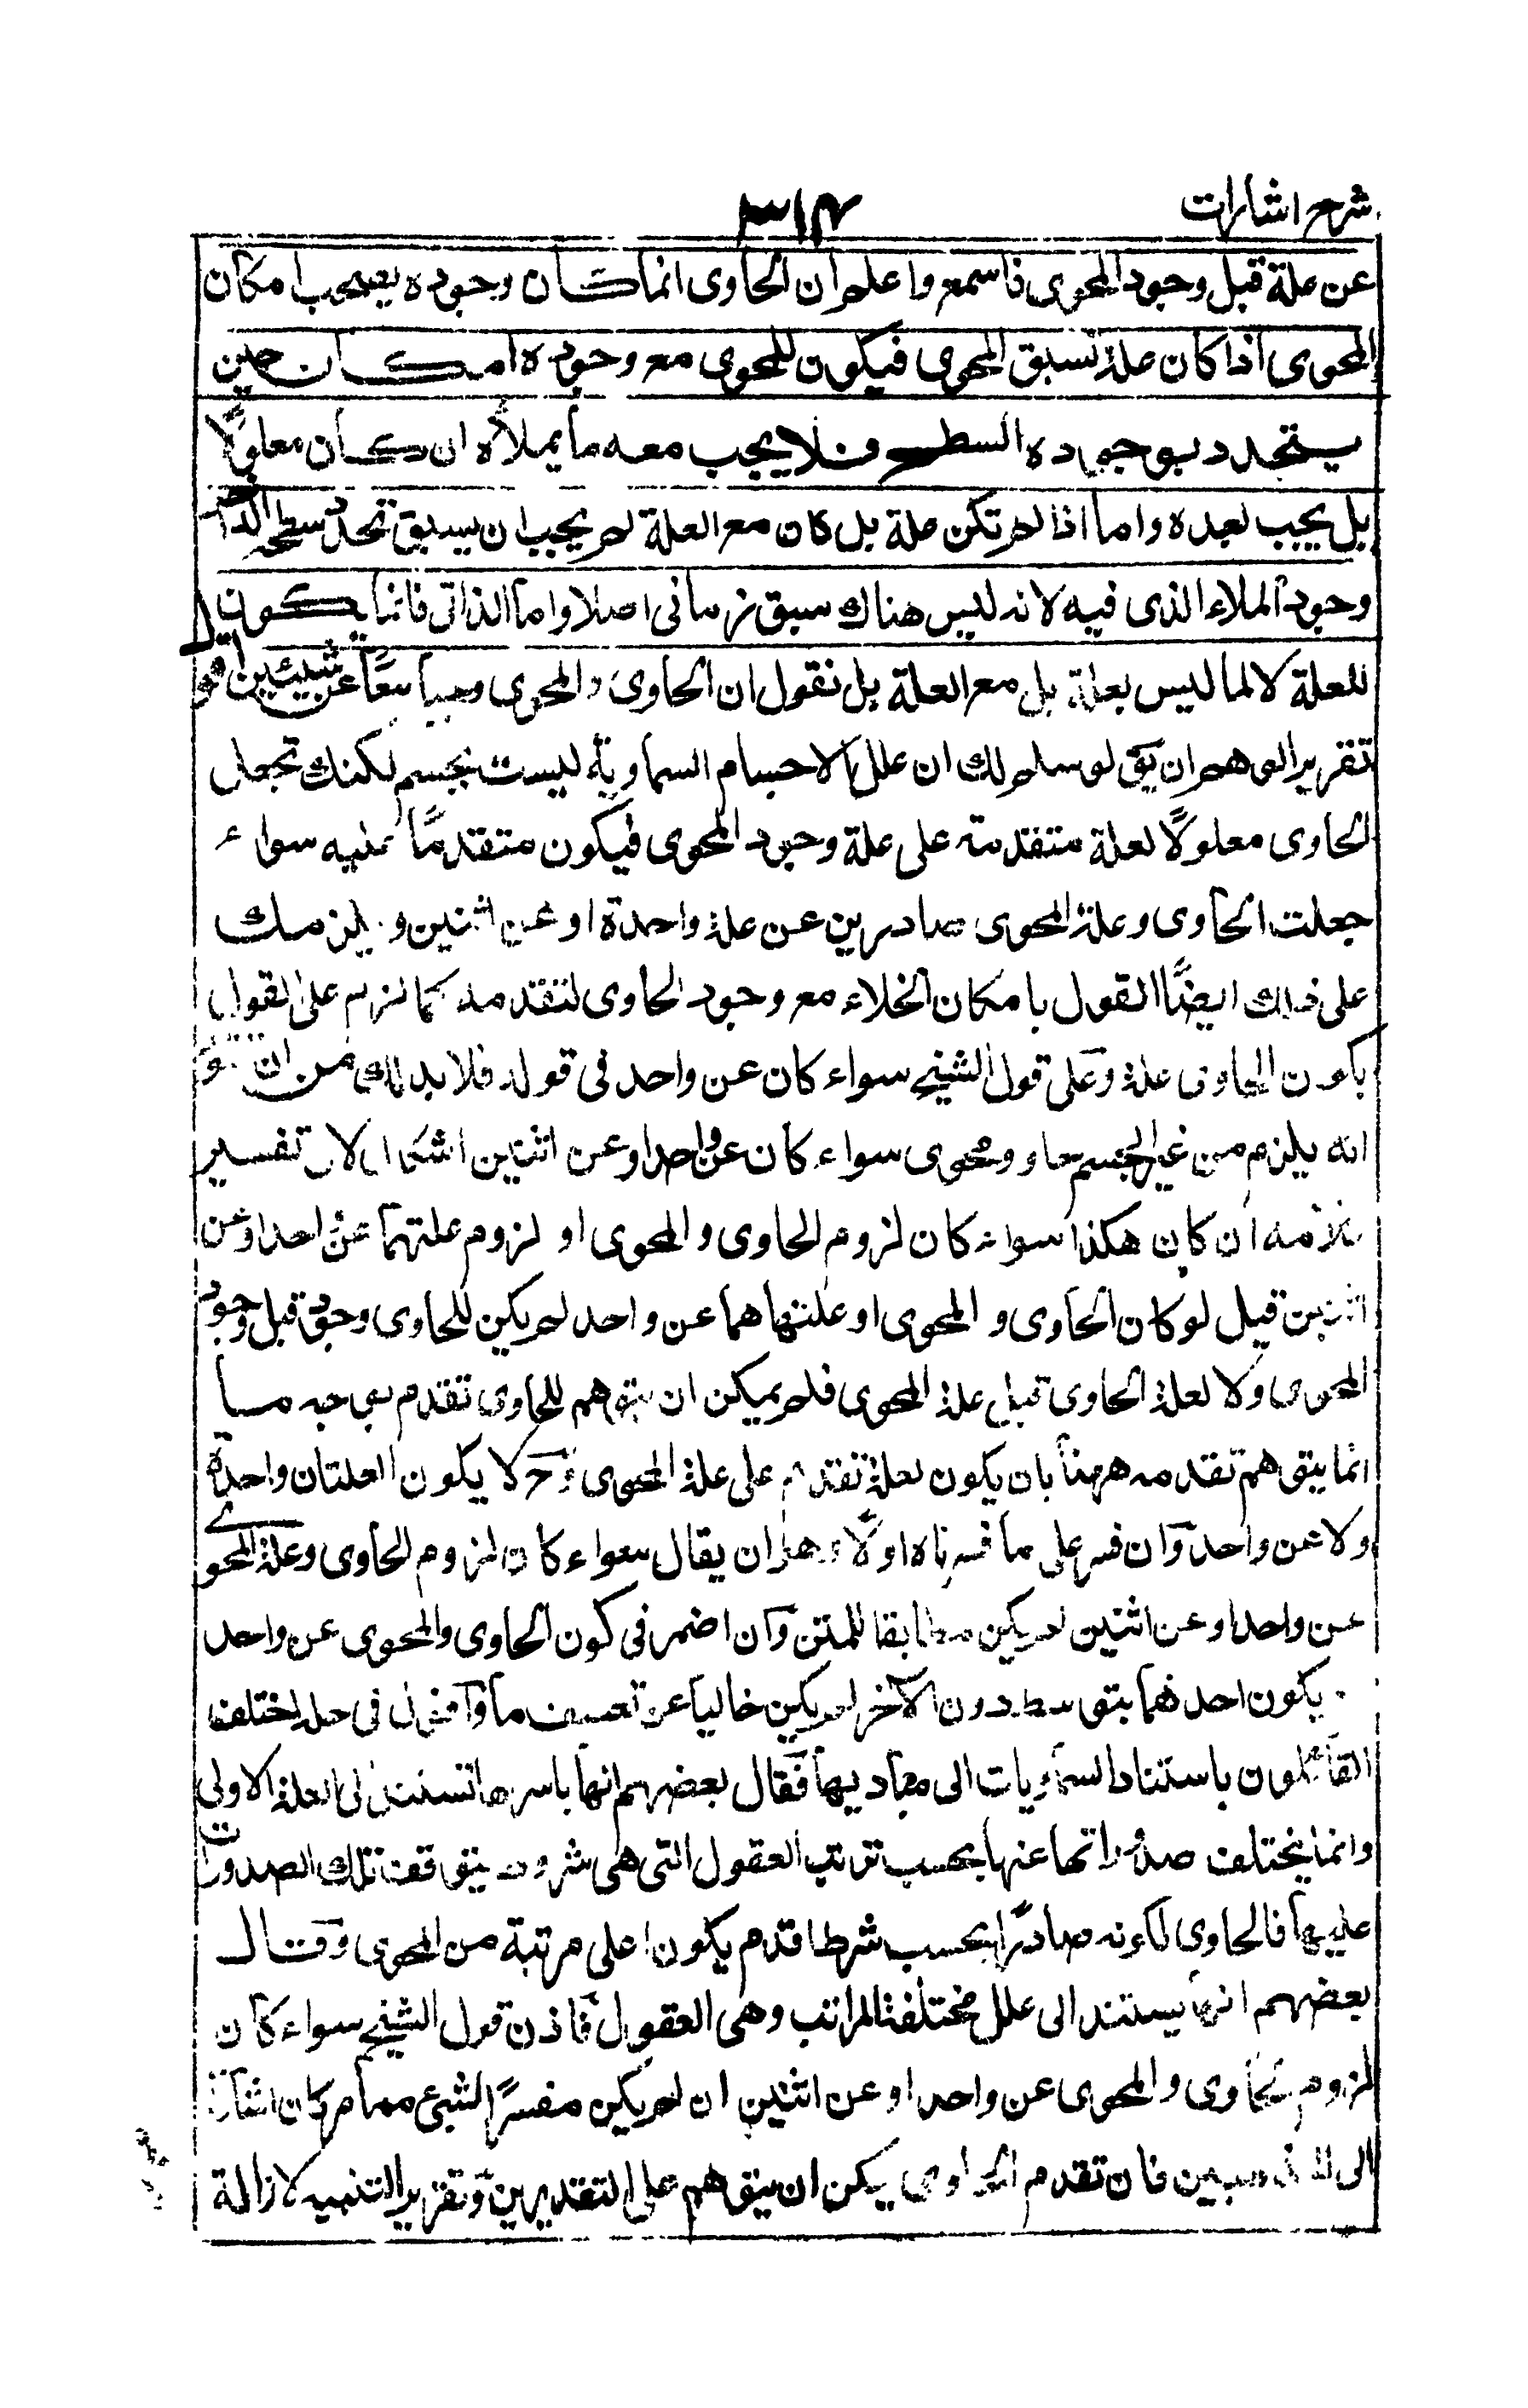 شرح اشارات
٣١٤
عن علة قبل وجود المحوى فاسمع واعلم ان الحاوى انما كان وجوده يصحب امكان
المحوى اذا كان علة تسبق المحوى فيكون للمحوى مع وجوده امكان حين
يتحدد بوجوده السطح فلا يجب معه ما يملأه ان كان معلولًا
بل يجب بعده واما اذا لم تكن علة بل كان مع العلة لم يجب ان يسبق تحدد سطحه الداخل
وجود الملاء الذى فيه لانه ليس هناك سبق زمانى اصلا واما الذاتى فانما يكون
للعلة لا لما ليس بعلة بل مع العلة بل نقول ان الحاوى والمحوى وجبا معًا عن شيئين اقول
تقرير الوهم ان يق لو سلم لك ان علل الاجسام السماوية ليست بجسم لكنك تجعل
الحاوى معلولًا لعلة متقدمة على علة وجود المحوى فيكون متقدمًا عليه سواء
جعلت الحاوى وعلة المحوى صادرين عن علة واحدة او عن اثنين ويلزمك
على ذلك ايضًا القول بامكان الخلاء مع وجود الحاوى لتقدمه كما لزم على القول
بكون الحاوى علة وعلى قول الشيخ سواء كان عن واحد فى قوله فلا بد لك من ان تقول
انه يلزم من غير الجسم حاو ومحوى سواء كان عن واحد او عن اثنين اشكال لان تفسير
كلامه ان كان هكذا سواء كان لزوم الحاوى والمحوى او لزوم علتهما عن واحد او عن
اثنين قيل لو كان الحاوى والمحوى او علتهما هما عن واحد لم يكن للحاوى وجود قبل وجود
المحوى ولا لعلة الحاوى قبل علة المحوى فلم يمكن ان يتوهم للحاوى تقدم بوجه ما
انما يتوهم تقدمه ههنا بان يكون لعلة تقدم على علة المحوى وح لا يكون العلتان واحدة
ولا عن واحد وان فسر على ما فسرناه اولًا وهو ان يقال سواء كان لزوم الحاوى وعلة المحوى
عن واحد او عن اثنين لم يكن مطابقا للمتن وان اضمر فى كون الحاوى والمحوى عن واحد
يكون احدهما بتوسط دون الآخر لم يكن خاليا عن تعسف ما واقول فى حله اختلف
القائلون باستناد السماويات الى مباديها فقال بعضهم انها باسرها تستند الى العلة الاولى
وانما يختلف صدوراتها عنها بحسب ترتب العقول التى هى شروط يتوقف تلك الصدورات
عليها فالحاوى لكونه صادرًا بحسب شرط اقدم يكون اعلى مرتبة من المحوى وقال
بعضهم انها يستند الى علل مختلفة المراتب وهى العقول فاذن قول الشيخ سواء كان
لزوم الحاوى والمحوى عن واحد او عن اثنين ان لم يكن مفسرًا لشئ مما مر كان اشارة
الى المذهبين فان تقدم الحاوى يمكن ان يتوهم على التقديرين وتقرير التنبيه لازالة